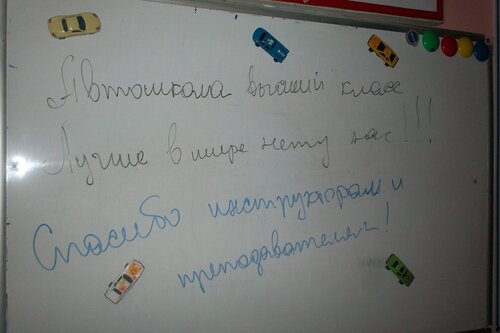 Автошкола высший класс
Лучше в мире нету нас!!!
Спасибо инструкторам и
преподавателям!